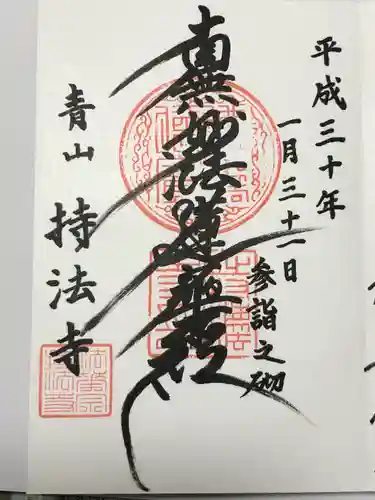 平成三十年
一月三十一日
参詣之砌
南無妙法蓮華経
青山 持法寺